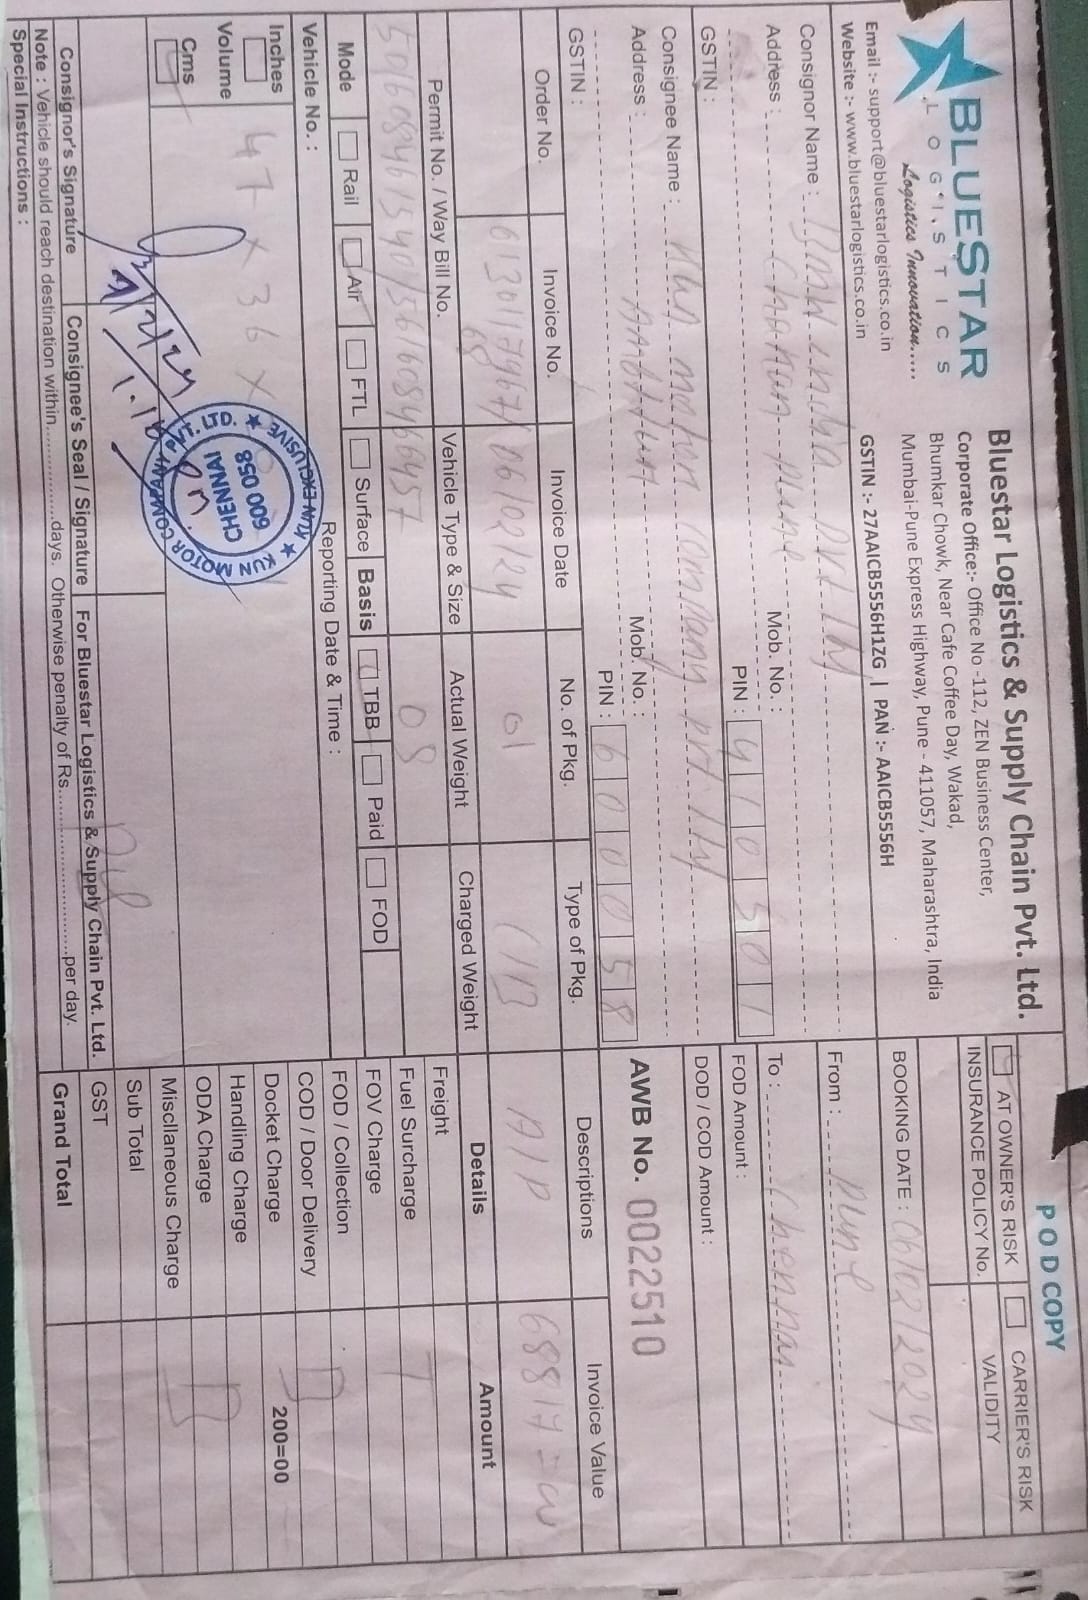 BLUESTAR
LOGISTICS
Logistics Innovation.....
Email :- support@bluestarlogistics.co.in
Website :- www.bluestarlogistics.co.in
Bluestar Logistics & Supply Chain Pvt. Ltd.
Corporate Office:- Office No -112, ZEN Business Center,
Bhumkar Chowk, Near Cafe Coffee Day, Wakad,
Mumbai-Pune Express Highway, Pune - 411057, Maharashtra, India
GSTIN :- 27AAICB5556H1ZG | PAN :- AAICB5556H
POD COPY
AT OWNER'S RISK CARRIER'S RISK
INSURANCE POLICY No. VALIDITY
BOOKING DATE : 06/02/2024
From : pune
To : Chennai
FOD Amount :
DOD / COD Amount :
AWB No. 0022510
Consignor Name : BMW india pvt ltd
Address : Chakan pune
Mob. No. :
PIN : 410501
GSTIN :
Consignee Name : Kun motor company pvt ltd
Address :
Mob. No. :
PIN : 600058
GSTIN :
Order No. Invoice No. Invoice Date No. of Pkg. Type of Pkg. Descriptions Invoice Value
06/02/24 01 A/P
68
Permit No. / Way Bill No. Vehicle Type & Size Actual Weight Charged Weight
501608461540/561608466457
Mode Rail Air FTL Surface Basis TBB Paid FOD
Vehicle No. : Reporting Date & Time :
Inches
Volume
Cms
47 x 36 x
KUN MOTOR COMPANY PVT. LTD. ★ KUN EXCLUSIVE ★
CHENNAI
600 058
Consignor's Signature Consignee's Seal / Signature For Bluestar Logistics & Supply Chain Pvt. Ltd.
Note : Vehicle should reach destination within..................days. Otherwise penalty of Rs.................................per day.
Special Instructions :
Details Amount
Freight
Fuel Surcharge T
FOV Charge
FOD / Collection
COD / Door Delivery B
Docket Charge 200=00
Handling Charge
ODA Charge B
Miscllaneous Charge
Sub Total
GST
Grand Total